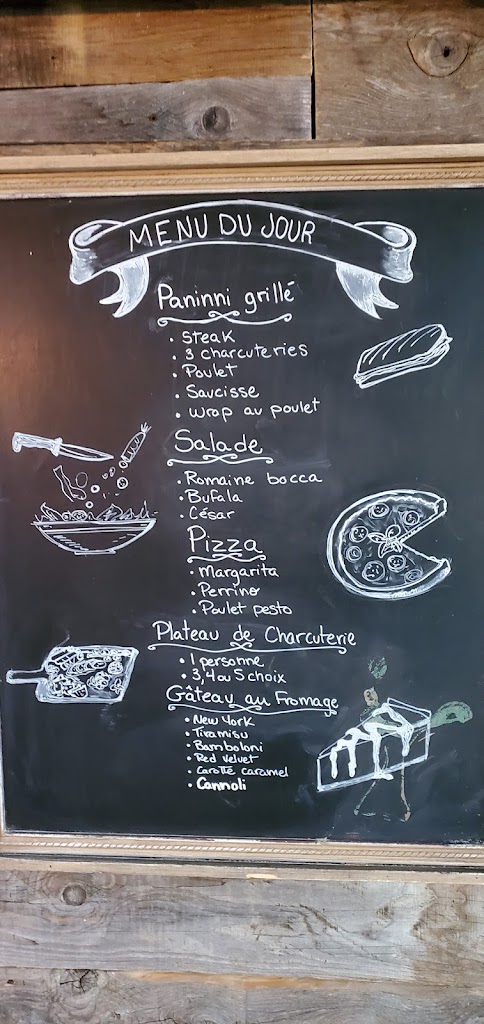 MENU DU JOUR
Paninni grillé
• Steak
• 3 charcuteries
• Poulet
• Saucisse
• wrap au poulet
Salade
• Romaine bocca
• Bufala
• César
Pizza
• Margarita
• Perrino
• Poulet pesto
Plateau de Charcuterie
• 1 personne
• 3, 4 ou 5 choix
Gâteau au Fromage
• New York
• Tiramisu
• Bamboloni
• Red velvet
• carotte caramel
• Cannoli